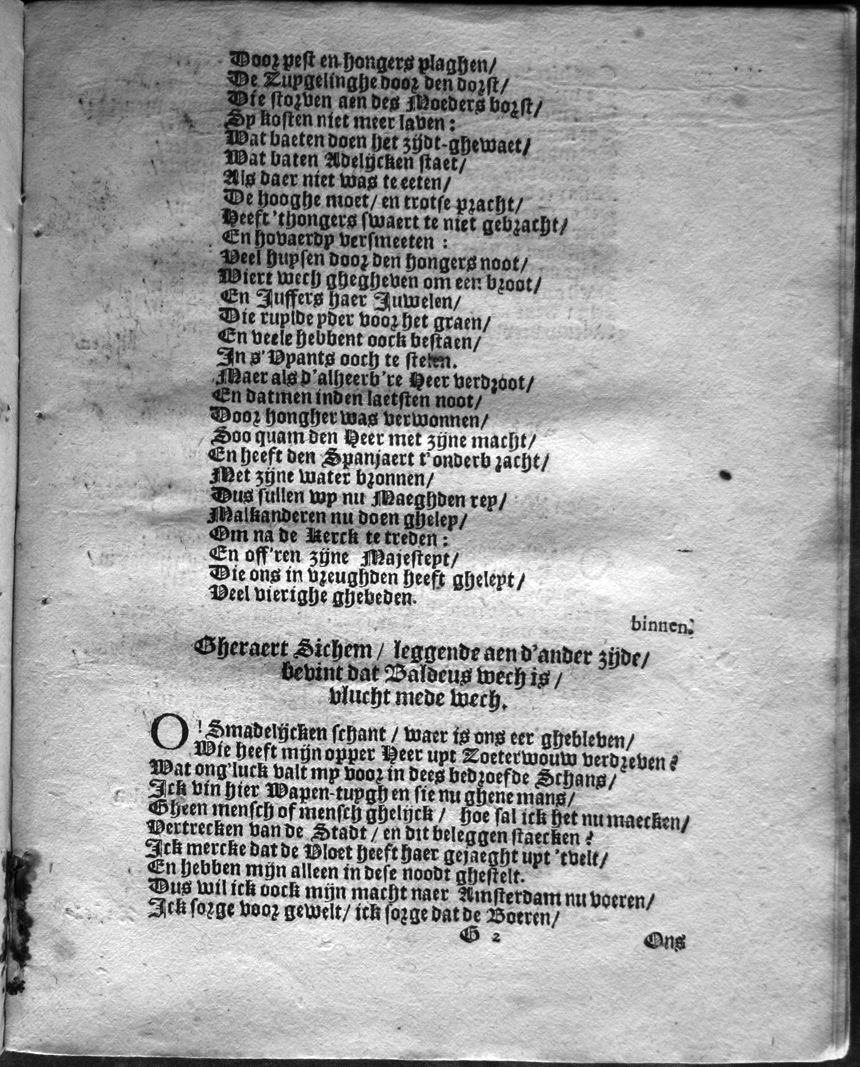 Door pest en hongers plaghen/
De Zupgelinghe door den dorst/
Die storven aen des Moeders borst/
Sy kosten niet meer laven:
Wat baeten doen het zijdt-ghewaet/
Wat baten Adelijcken staet/
Als daer niet was te eeten/
De hooghe moet/ en trotse pracht/
Heeft 'thongers swaert te niet gebracht/
En hovaerdy versmeeten:
Veel huysen door den hongers noot/
Wiert wech ghegheven om een broot/
En Juffers haer Juwelen/
Die ruylde yder voor het graen/
En veele hebbent oock bestaen/
In s'Vyants ooch te stelen.
Maer als d'alheerb're Heer verdroot/
En datmen inden laetsten noot/
Door hongher was verwonnen/
Soo quam den Heer met zijne macht/
En heeft den Spanjaert t'onderbracht/
Met zijne water bronnen/
Dus sullen wy nu Maeghden rey/
Malkanderen nu doen gheley/
Om na de Kerck te treden:
En off'ren zijne Majesteyt/
Die ons in vreughden heeft gheleyt/
Veel vierighe ghebeden.
binnen.
Gheraert Sichem/ leggende aen d'ander zijde/
bevint dat Baldeus wech is/
vlucht mede wech.
O! Smadelijcken schant/ waer is ons eer ghebleven/
Wie heeft mijn opper Heer upt Zoeterwouw verdreven?
Wat ong'luck valt my voor in dees bedroefde Schans/
Ick vin hier Wapen-tuygh en sie nu ghene mans/
Gheen mensch of mensch ghelijck/ hoe sal ick het nu maecken/
Vertrecken van de Stadt/ en dit beleggen staecken?
Ick mercke dat de Vloet heeft haer gejaeght upt 'tvelt/
En hebben mijn alleen in dese noodt ghestelt.
Dus wil ick oock mijn macht naer Amsterdam nu voeren/
Ick sorge voor gewelt/ ick sorge dat de Boeren/
G 2 Ons